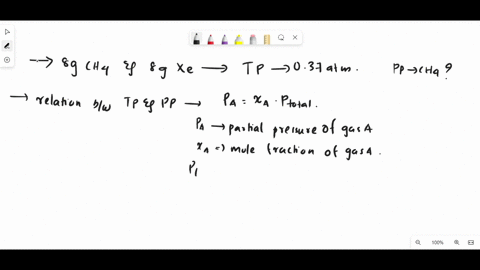 → 8g CH4 & 8g Xe → TP → 0.37 atm. PP → CH4 ?
→ relation b/w TP & PP → PA = xA . Ptotal.
PA → partial pressure of gas A
xA => mole fraction of gas A.
P
100%